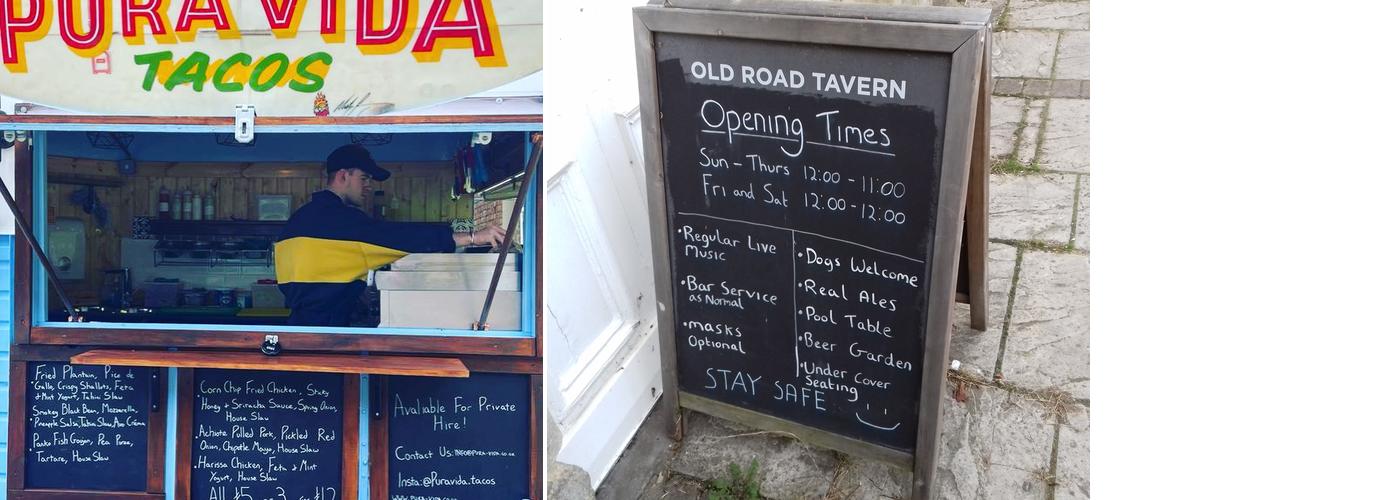 PURA VIDA
TACOS
Fried Plantain, Pico de
Gallo, Crispy Shallots, Feta
& Mint Yogurt, Tahini Slaw
Smokey Black Bean, Mozzarella,
Pineapple Salsa, Tahini Slaw, Avo Créma
Panko Fish Goujon, Pea Puree,
Tartare, House Slaw
Corn Chip Fried Chicken, Sticky
Honey & Sriracha Sauce, Spring Onion,
House Slaw
Achiote Pulled Pork, Pickled Red
Onion, Chipotle Mayo, House Slaw
Harissa Chicken, Feta & Mint
Yogurt, House Slaw
All £5 3 £12
Available For Private
Hire!
Contact Us: INFO@PURA-VIDA.CO.UK
Insta: @Puravida.tacos
OLD ROAD TAVERN
Opening Times
Sun - Thurs 12:00 - 11:00
Fri and Sat 12:00 - 12:00
• Regular Live
Music
• Bar Service
as Normal
• masks
Optional
• Dogs Welcome
• Real Ales
• Pool Table
• Beer Garden
• Under Cover
Seating
STAY SAFE